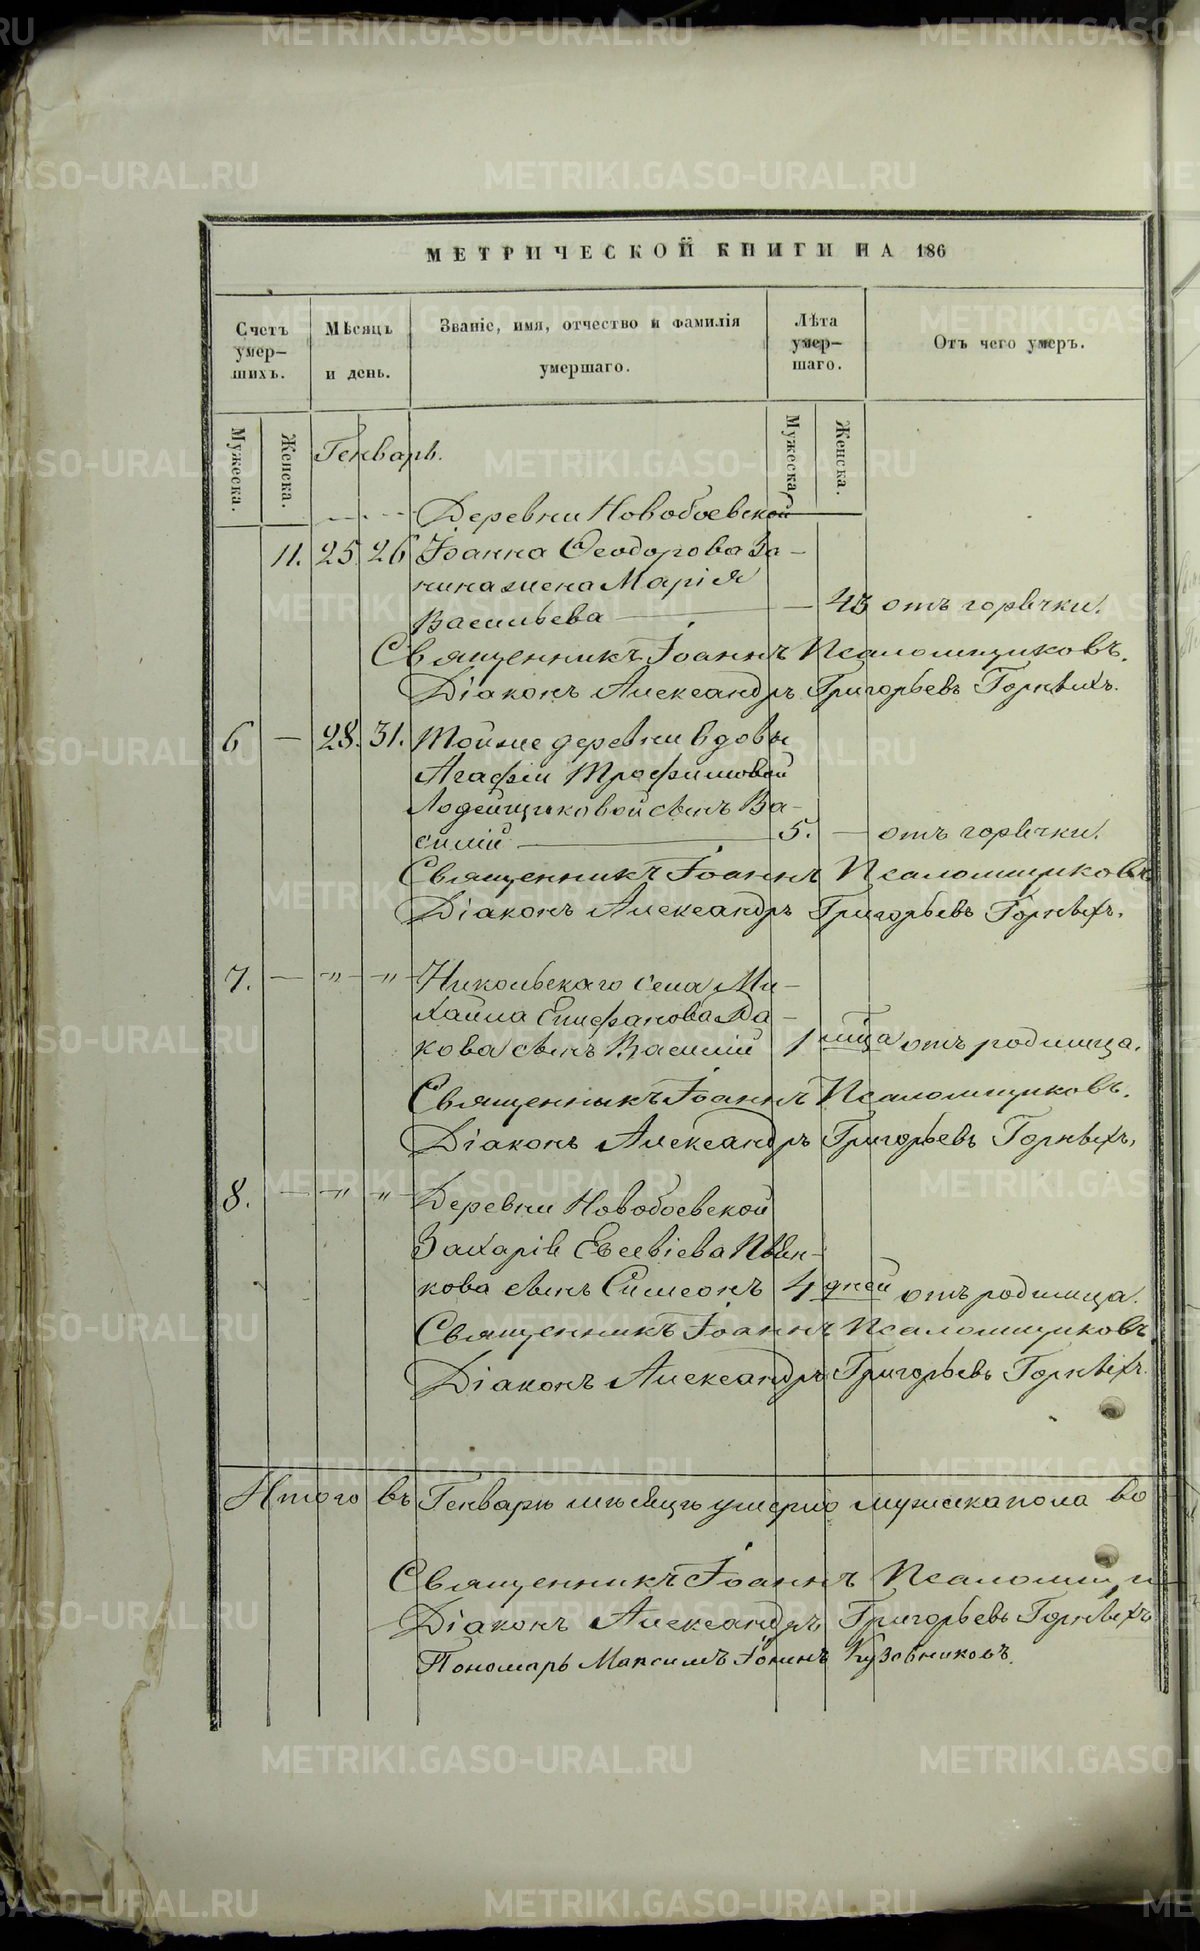 МЕТРИЧЕСКОЙ КНИГИ НА 186
Счетъ умер-шихъ.
Мѣсяцъ и день.
Званіе, имя, отчество и фамилія умершаго.
Лѣта умер-шаго.
Отъ чего умеръ.
Мужеска. Женска.
Мужеска. Женска.
Генварь.
Деревни Новобоевской
11. 25 26 Іоанна Ѳеодорова За-
нина жена Марія
Васильева — 43 отъ горячки.
Священникъ Іоаннъ Псаломщиковъ.
Діаконъ Александръ Григорьевъ Горныхъ.
6 — 28. 31. Тойже деревни вдовы
Агафіи Трофимовой
Лодейщиковой сынъ Ва-
силій — 5. — отъ горячки.
Священникъ Іоаннъ Псаломщиковъ
Діаконъ Александръ Григорьевъ Горныхъ.
7. — " — " — Никольскаго села Ми-
хаила Епифанова
кова сынъ Василій 1 мца отъ родимца.
Священникъ Іоаннъ Псаломщиковъ.
Діаконъ Александръ Григорьевъ Горныхъ,
8. — " — " — Деревни Новобоевской
Захаріи Евсевіева
кова сынъ Симеонъ 4 дней отъ родимца.
Священникъ Іоаннъ Псаломщиковъ.
Діаконъ Александръ Григорьевъ Горныхъ.
Итого въ Генварѣ мѣсяцѣ умерло мужска пола во
Священникъ Іоаннъ
Діаконъ Александръ Григорьевъ Горныхъ
Пономарь Максимъ Іонинъ Кузовниковъ.
METRIKI.GASO-URAL.RU